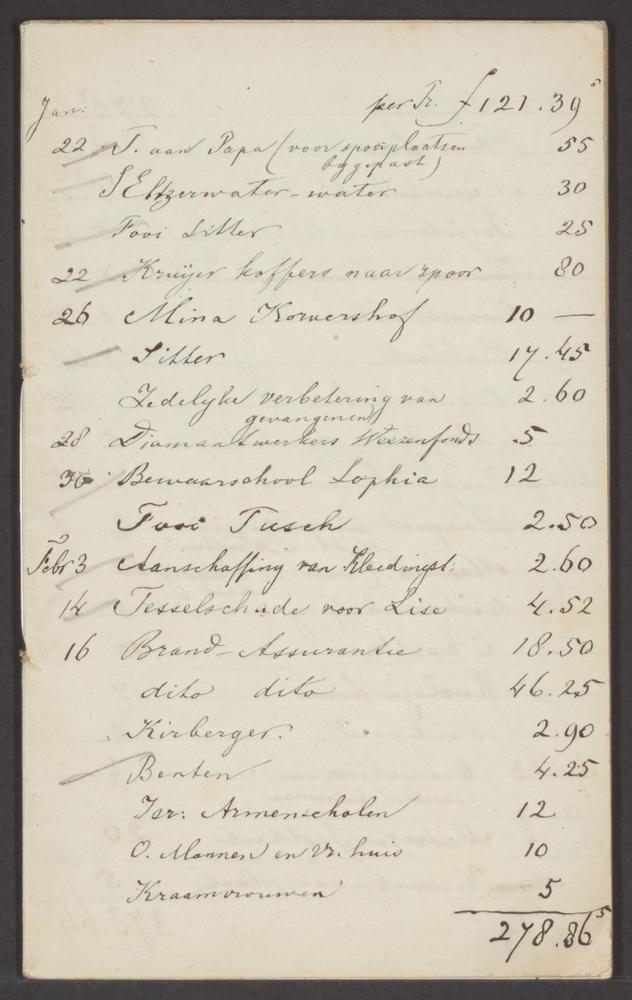 Jan: per Tr. ƒ 121.39⁵
22 T. aan Papa (voor spoorplaatsen 55
bygepast)
SEltzerwater-water 30
Fooi Sitter 25
22 Kruijer koffers naar spoor 80
26 Mina Korvershof 10 —
Sitter 17.45
Zedelyke verbetering van 2.60
gevangenen
28 Diamantwerkers Weezenfonds .5
30 Bewaarschool Sophia 12
Fooi Tusch 2.50
Febr 3 Aanschaffing van Kledingst: 2.60
14 Tesselschade voor Lise 4.52
16 Brand-Assurantie 18.50
dito dito 46.25
Kirberger. 2.90
Benten 4.25
Isr: Armenscholen 12
O. Mannen en Vr. huis 10
Kraamvrouwen 5
278.86⁵